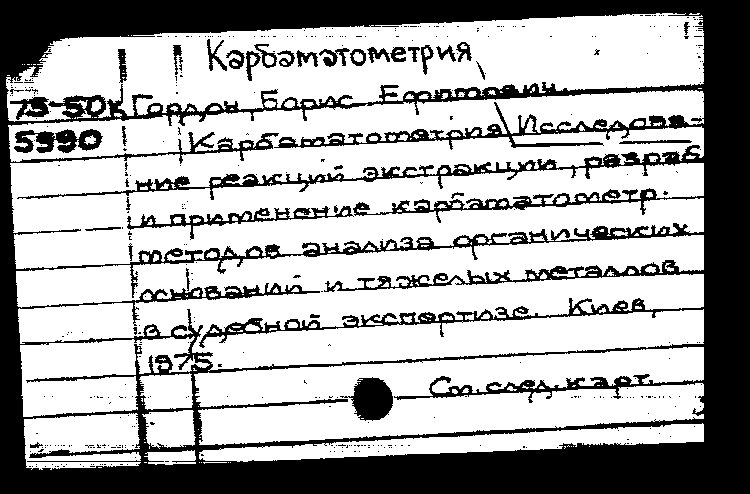 Карбаматометрия
75-50к Гордон, Борис Ефимович.
5990 Карбаматометрия. Исследова-
ние реакций экстракции, разраб.
и применение карбаматометр.
методов анализа органических
оснований и тяжелых металлов
в судебной экспертизе. Киев,
1975.
См. след. карт.